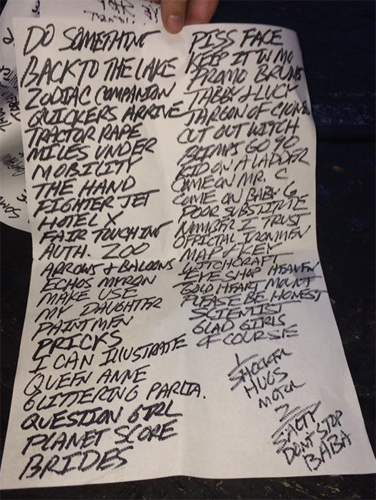 DO SOMETHING
BACK TO THE LAKE
ZODIAC COMPANION
QUICKERS ARRIVE
TRACTOR RAPE
MILES UNDER
MOBILITY
THE HAND
FIGHTER JET
HOTEL X
FAIR TOUCHING
AUTH. ZOO
ARROWS & BALOONS
ECHOS MYRON
MAKE USE
MY DAUGHTER
PAINTMEN
PRICKS
I CAN ILLUSTRATE
QUEEN ANNE
GLITTERING PARLIA.
QUESTION GIRL
PLANET SCORE
BRIDES
PISS FACE
KEEP IT IN MO
PROMO BRUNS
TABBY & LUCY
JARGON OF CLONES
CUT OUT WITCH
BLIMPS GO 90
KID ON A LADDER
COME ON MR. C
COME ON BABY G
POOR SUBSTITUTE
NUMBER I TRUST
OFFICIAL IRONMEN
MAD
WITCHCRAFT
EYE SHOP HEAVEN
GOLD HEART MOUNT
PLEASE BE HONEST
SCIENTIST
GLAD GIRLS
OF COURSE
1
SHOCKER
HUGS
MOTOR
2
SHOTY
DONT STOP
BABA